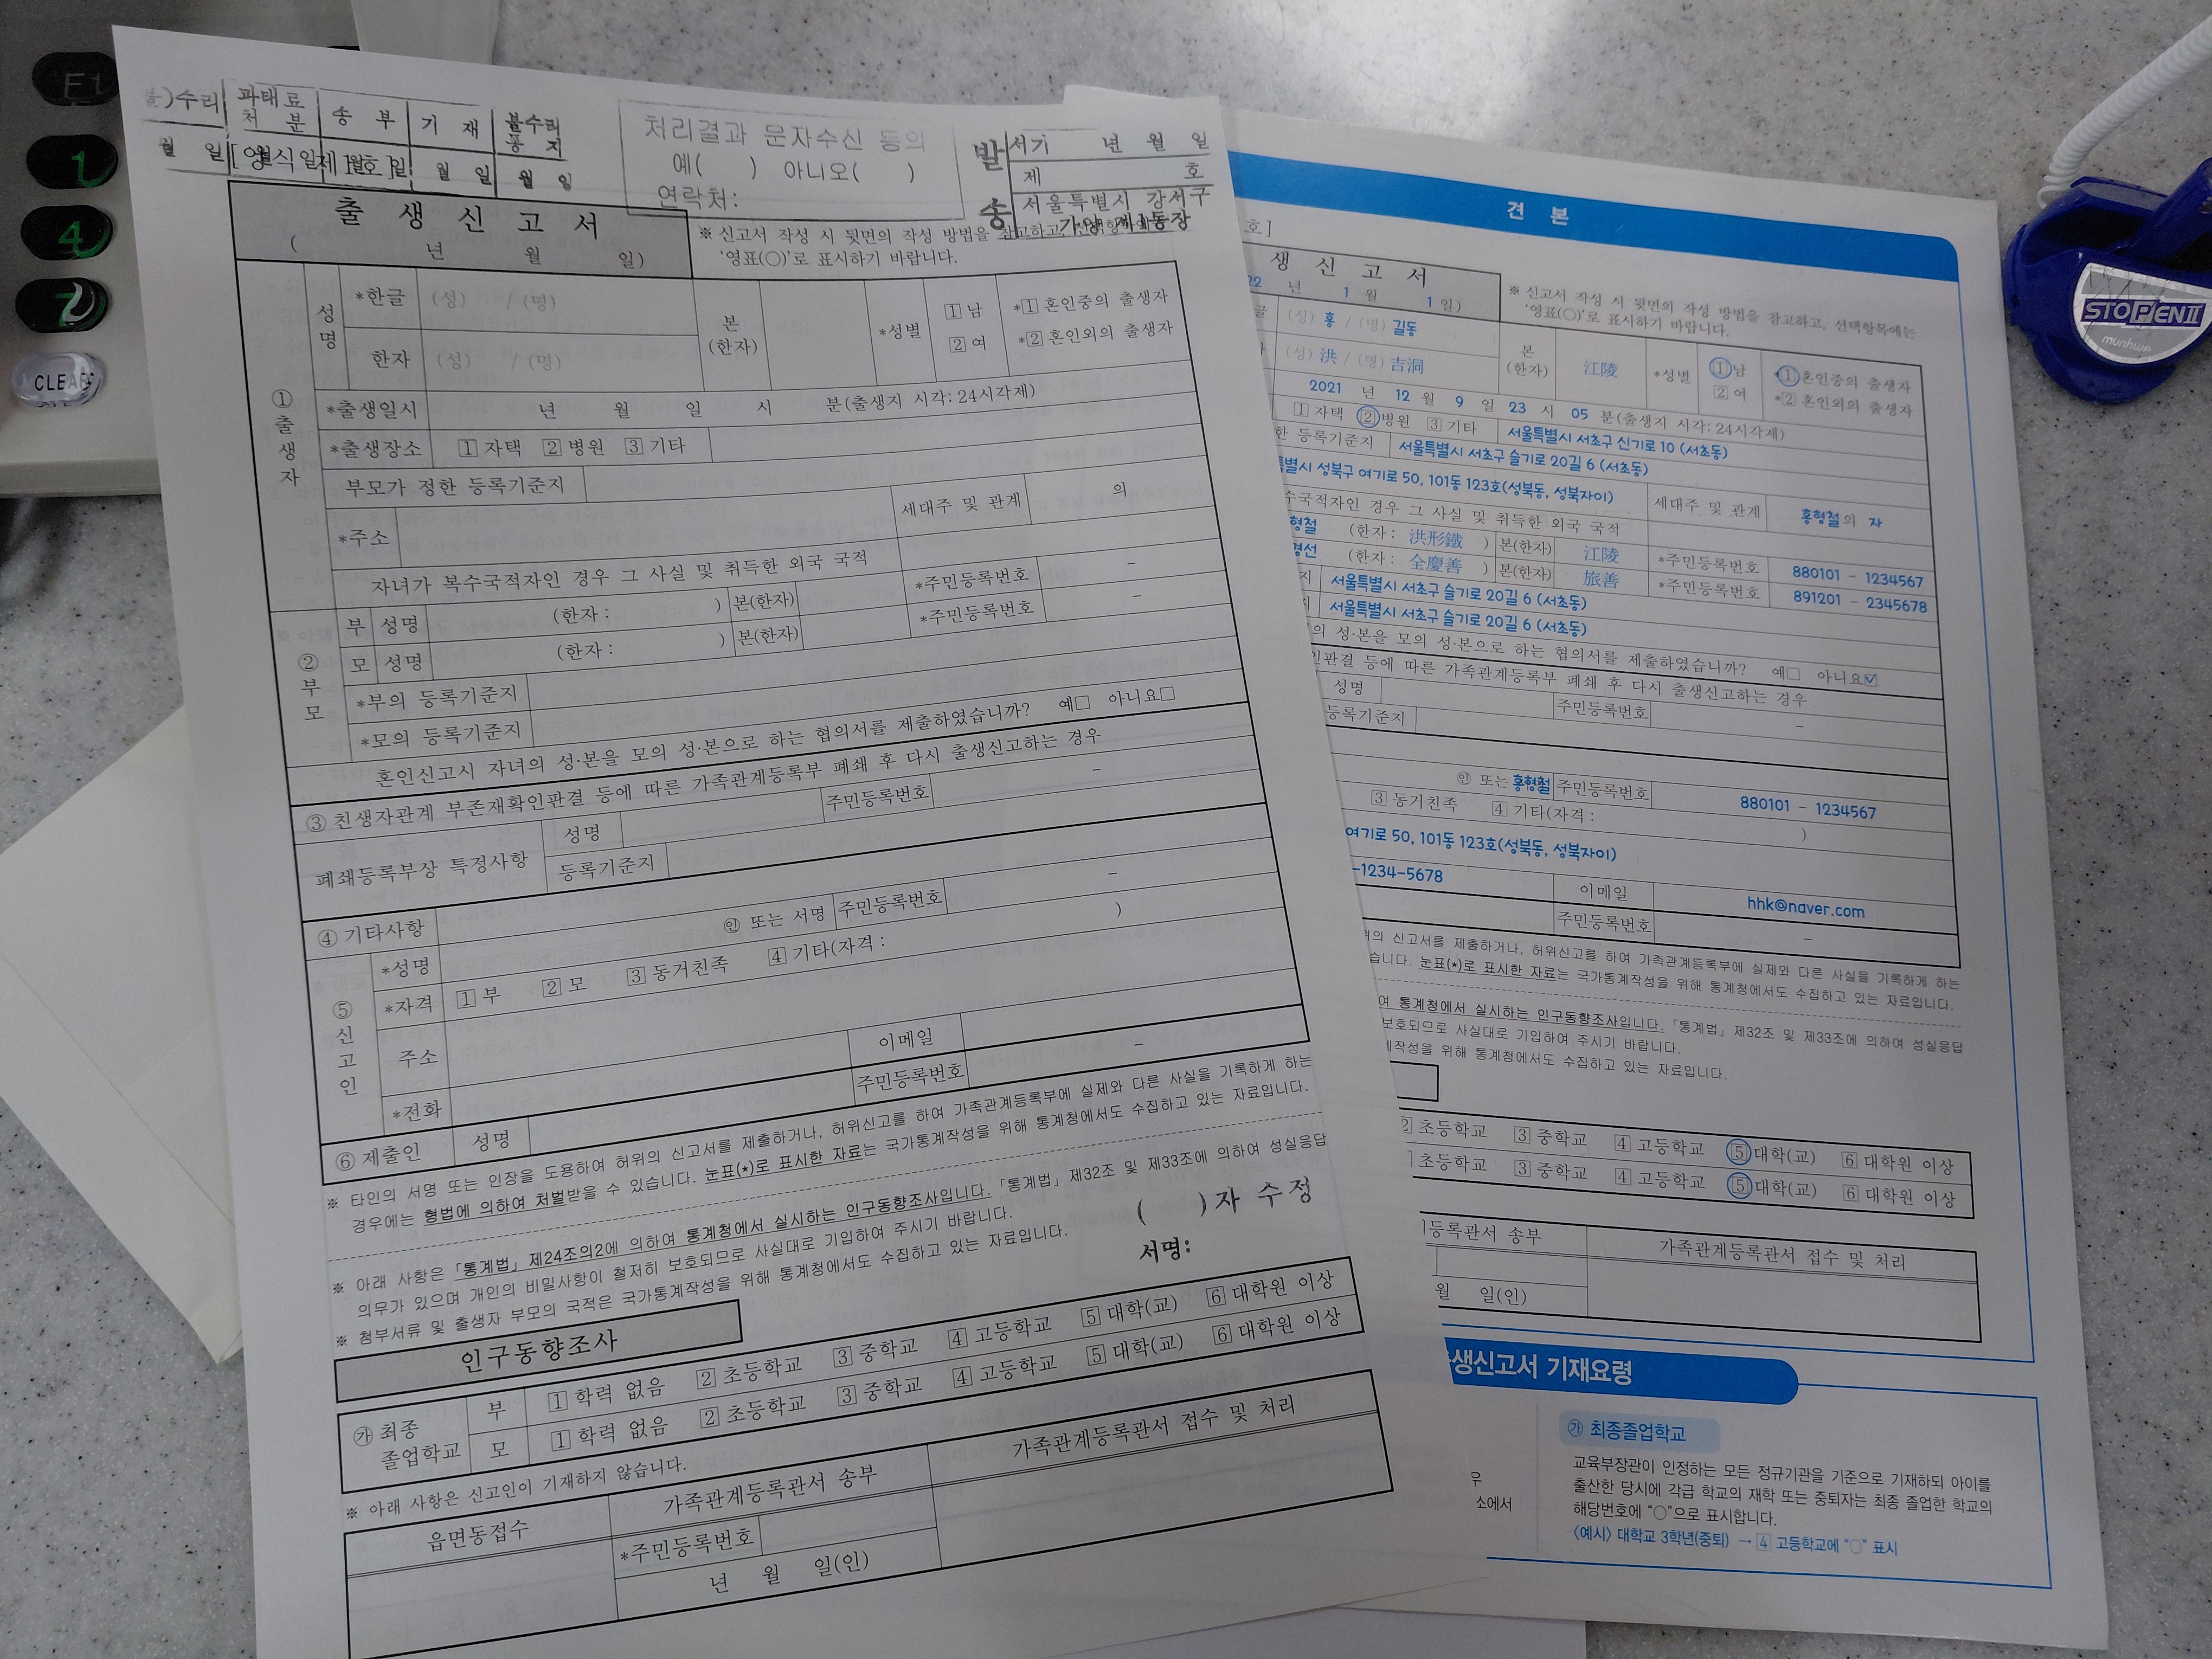 수리 과태료 처 분 송 부 기 재 불수리 통 지
월 일 월 일 월 일
[양식 제1호]
처리결과 문자수신 동의
예( ) 아니오( )
연락처:
발송
서기 년 월 일
제 호
서울특별시 강서구
가양제1동장
출 생 신 고 서
( 년 월 일)
※ 신고서 작성 시 뒷면의 작성 방법을 참고하고,
‘영표(○)’로 표시하기 바랍니다.
① 출생자
성명
*한글 (성) / (명)
한자 (성) / (명)
본 (한자)
*성별 1 남 2 여
*1 혼인중의 출생자
*2 혼인외의 출생자
*출생일시 년 월 일 시 분(출생지 시각: 24시각제)
*출생장소 1 자택 2 병원 3 기타
부모가 정한 등록기준지
*주소 세대주 및 관계 의
자녀가 복수국적자인 경우 그 사실 및 취득한 외국 국적
② 부모
부 성명 (한자 : ) 본(한자) *주민등록번호 –
모 성명 (한자 : ) 본(한자) *주민등록번호 –
*부의 등록기준지
*모의 등록기준지
혼인신고시 자녀의 성·본을 모의 성·본으로 하는 협의서를 제출하였습니까? 예□ 아니요□
③ 친생자관계 부존재확인판결 등에 따른 가족관계등록부 폐쇄 후 다시 출생신고하는 경우
폐쇄등록부상 특정사항 성명 주민등록번호 –
등록기준지
④ 기타사항
⑤ 신고인
*성명 ㊞ 또는 서명 주민등록번호 –
*자격 1 부 2 모 3 동거친족 4 기타(자격 : )
주소
*전화 이메일
⑥ 제출인 성명 주민등록번호 –
※ 타인의 서명 또는 인장을 도용하여 허위의 신고서를 제출하거나, 허위신고를 하여 가족관계등록부에 실제와 다른 사실을 기록하게 하는
경우에는 형법에 의하여 처벌받을 수 있습니다. 눈표(*)로 표시한 자료는 국가통계작성을 위해 통계청에서도 수집하고 있는 자료입니다.
※ 아래 사항은 「통계법」 제24조의2에 의하여 통계청에서 실시하는 인구동향조사입니다. 「통계법」 제32조 및 제33조에 의하여 성실응답
의무가 있으며 개인의 비밀사항이 철저히 보호되므로 사실대로 기입하여 주시기 바랍니다.
※ 첨부서류 및 출생자 부모의 국적은 국가통계작성을 위해 통계청에서도 수집하고 있는 자료입니다.
( )자 수정
서명:
인구동향조사
㉮ 최종 졸업학교
부 1 학력 없음 2 초등학교 3 중학교 4 고등학교 5 대학(교) 6 대학원 이상
모 1 학력 없음 2 초등학교 3 중학교 4 고등학교 5 대학(교) 6 대학원 이상
※ 아래 사항은 신고인이 기재하지 않습니다.
읍면동접수 가족관계등록관서 송부 가족관계등록관서 접수 및 처리
*주민등록번호
년 월 일(인)
견 본
호]
생 신 고 서
22 년 1 월 1 일)
※ 신고서 작성 시 뒷면의 작성 방법을 참고하고, 선택항목에는
‘영표(○)’로 표시하기 바랍니다.
(성) 홍 / (명) 길동
(성) 洪 / (명) 吉洞
본 (한자) 江陵
*성별 1 남 2 여
*1 혼인중의 출생자
*2 혼인외의 출생자
2021 년 12 월 9 일 23 시 05 분(출생지 시각: 24시각제)
1 자택 2 병원 3 기타 서울특별시 서초구 신기로 10 (서초동)
한 등록기준지 서울특별시 서초구 슬기로 20길 6 (서초동)
특별시 성북구 여기로 50, 101동 123호(성북동, 성북자이) 세대주 및 관계 홍형철의 자
수국적자인 경우 그 사실 및 취득한 외국 국적
형철 (한자 : 洪形鐵 ) 본(한자) 江陵 *주민등록번호 880101 - 1234567
경선 (한자 : 全慶善 ) 본(한자) 旅善 *주민등록번호 891201 - 2345678
지 서울특별시 서초구 슬기로 20길 6 (서초동)
지 서울특별시 서초구 슬기로 20길 6 (서초동)
의 성·본을 모의 성·본으로 하는 협의서를 제출하였습니까? 예□ 아니요☑
인판결 등에 따른 가족관계등록부 폐쇄 후 다시 출생신고하는 경우
성명 주민등록번호 –
등록기준지
㊞ 또는 홍형철 주민등록번호 880101 - 1234567
3 동거친족 4 기타(자격 : )
여기로 50, 101동 123호(성북동, 성북자이)
-1234-5678 이메일 hhk@naver.com
주민등록번호 –
위의 신고서를 제출하거나, 허위신고를 하여 가족관계등록부에 실제와 다른 사실을 기록하게 하는
습니다. 눈표(*)로 표시한 자료는 국가통계작성을 위해 통계청에서도 수집하고 있는 자료입니다.
여 통계청에서 실시하는 인구동향조사입니다. 「통계법」 제32조 및 제33조에 의하여 성실응답
보호되므로 사실대로 기입하여 주시기 바랍니다.
계작성을 위해 통계청에서도 수집하고 있는 자료입니다.
2 초등학교 3 중학교 4 고등학교 5 대학(교) 6 대학원 이상
초등학교 3 중학교 4 고등학교 5 대학(교) 6 대학원 이상
등록관서 송부 가족관계등록관서 접수 및 처리
월 일(인)
생신고서 기재요령
㉮ 최종졸업학교
교육부장관이 인정하는 모든 정규기관을 기준으로 기재하되 아이를
출산한 당시에 각급 학교의 재학 또는 중퇴자는 최종 졸업한 학교의
해당번호에 “○”으로 표시합니다.
〈예시〉 대학교 3학년(중퇴) → 4 고등학교에 “○” 표시
우
소에서
F1
1
4
7
CLEAR
STOPEN II
munhwa